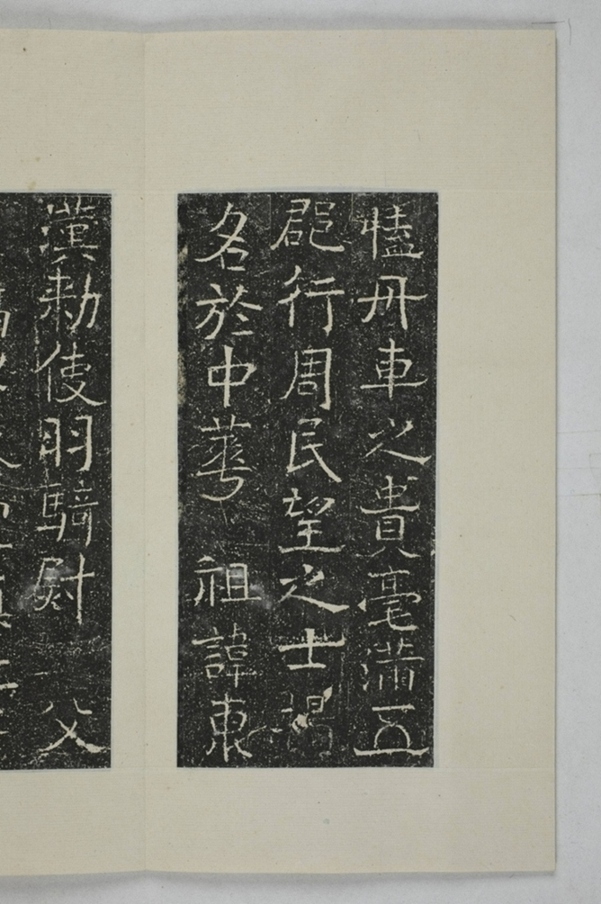 丹車之貴毫滿五
郡行周民望之士揭
名於中華 祖諱東
漢勅使羽騎尉 父